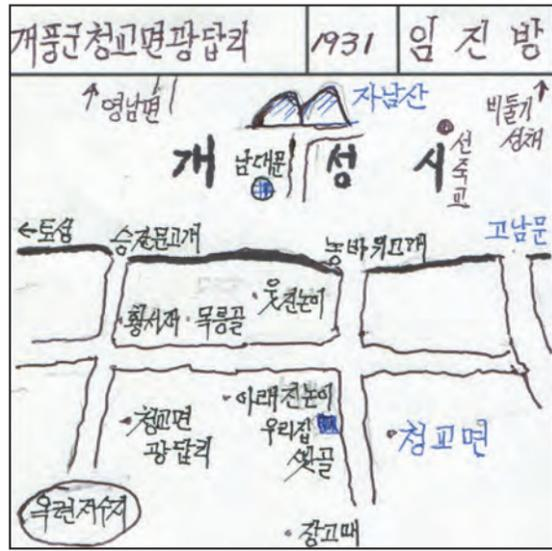 개풍군청교면광답리 1931 임진방
↑영남면
자남산
비둘기↑
성채
개성시
남대문
선죽교
←토성
승결문고개
농바위고개
고남문
·황서재 ·목릉골
·웃진논이
·아래진논이
·청교면
광답리
우리집
샛골
·청교면
우련저수지
·장고때